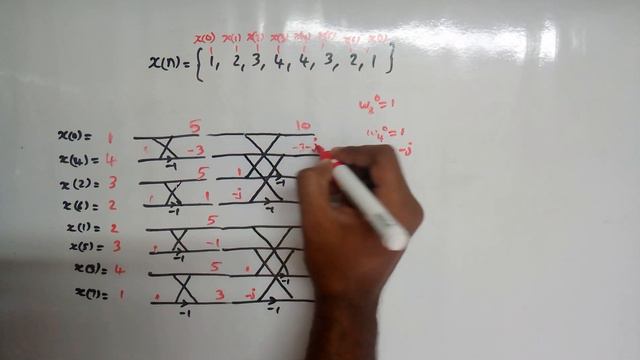 x(0) x(1) x(2) x(3) x(4) x(5) x(6) x(7)
x(n) = { 1, 2, 3, 4, 4, 3, 2, 1 }
w₈⁰ = 1
w₄⁰ = 1
-j
x(0) = 1 5 10
x(4) = 4 -1 -3 -3-j
x(2) = 3 5 1 -1
x(6) = 2 -1 1 -j -1
x(1) = 2 5
x(5) = 3 -1 -1
x(3) = 4 5 -1
x(7) = 1 -1 3 -j -1